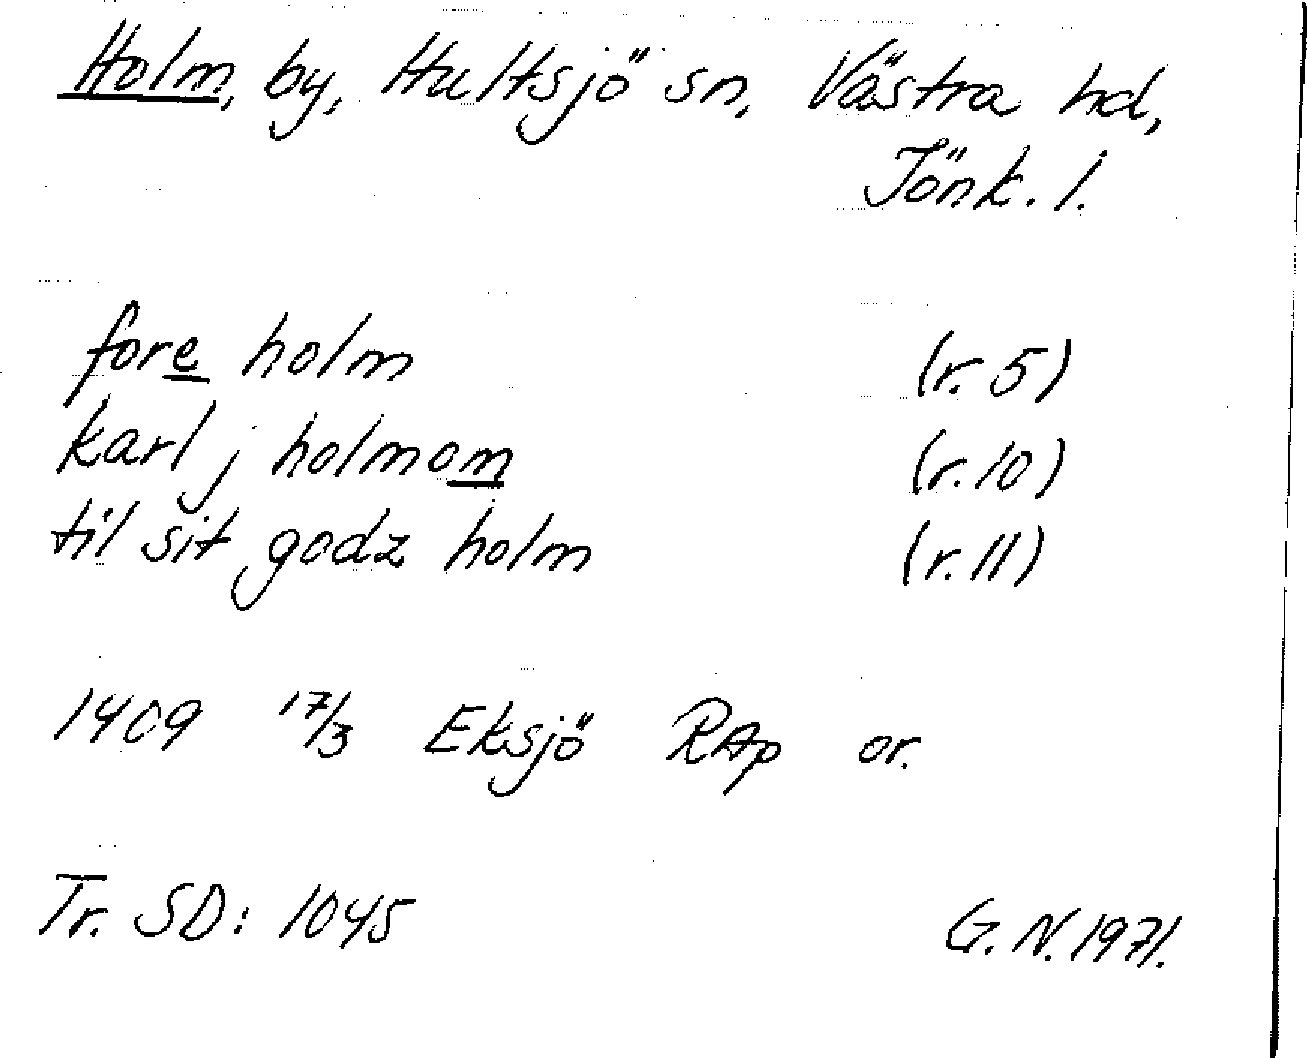 Holm, by, Hultsjö sn, Västra hd,
Jönk. l.
fore holm (r. 5)
karl j holmom (r. 10)
til sit godz holm (r. 11)
1409 17/3 Eksjö RAp or.
Tr. SD: 1045 G. N. 1971.